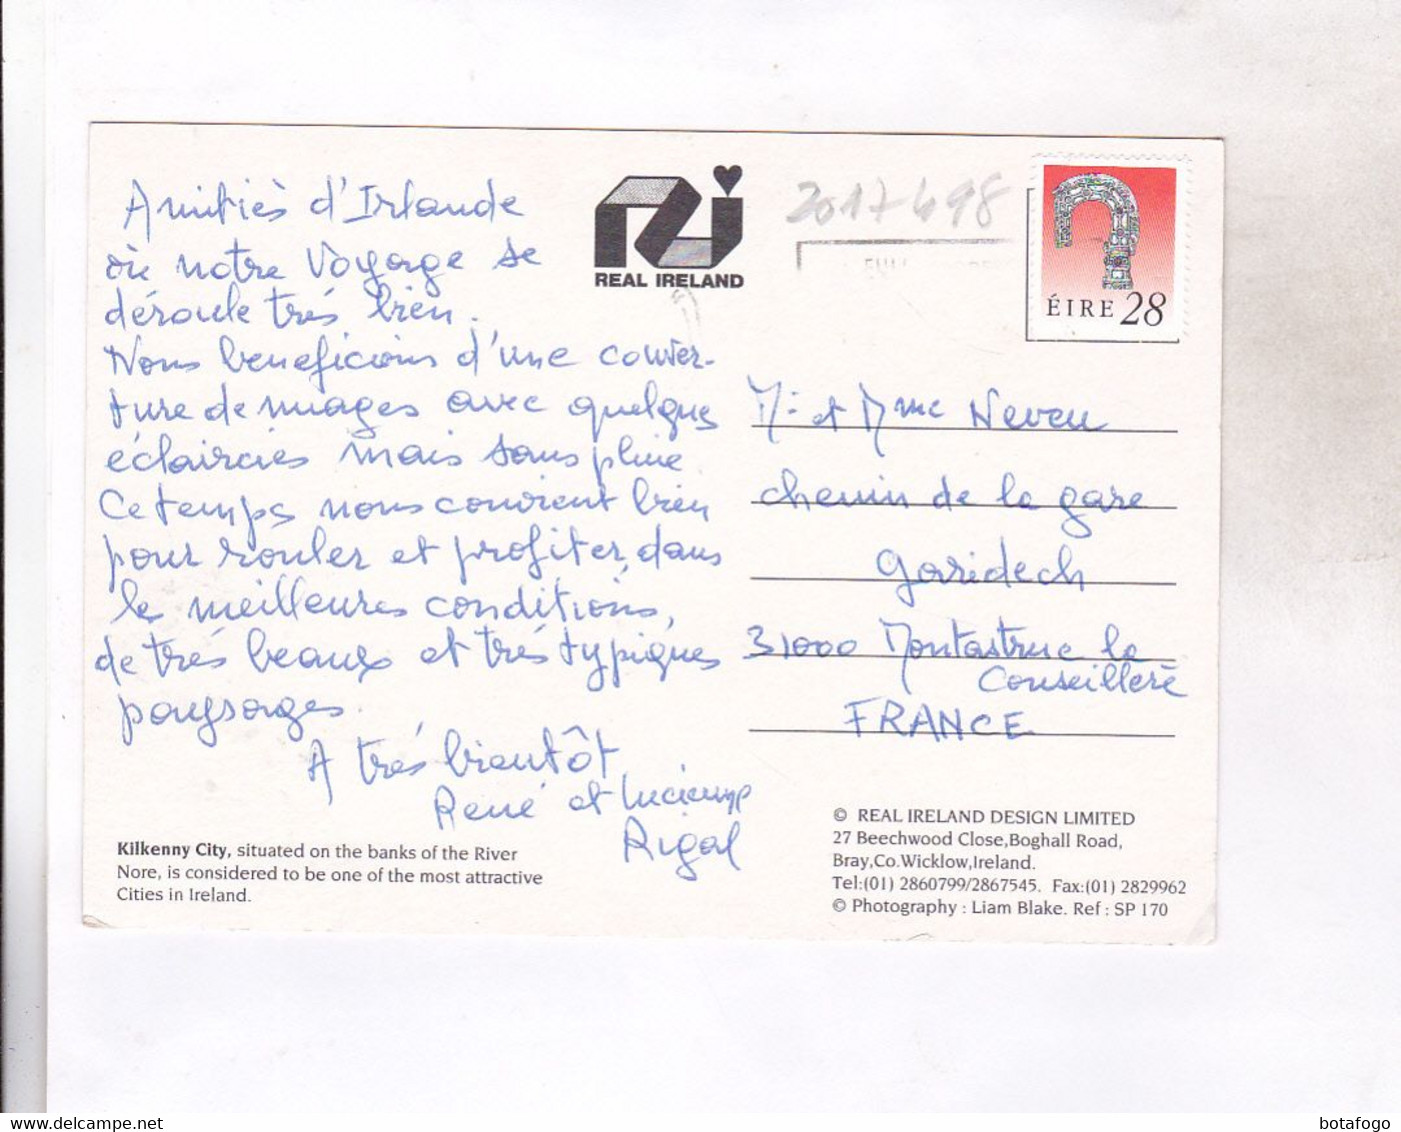 Amitiés d'Irlande
où notre voyage se
déroule très bien.
Nous beneficions d'une couver-
ture de nuages avec quelques
éclaircies mais sans pluie.
Ce temps nous convient bien
pour rouler et profiter, dans
les meilleures conditions,
de très beaux et très typiques
paysages.
A très bientôt
René et Lucienne
Rigal
Kilkenny City, situated on the banks of the River
Nore, is considered to be one of the most attractive
Cities in Ireland.
REAL IRELAND
2017498
ÉIRE 28
Mr et Mme Neveu
chemin de la gare
Garidech
31000 Montastruc la
Conseillère
FRANCE
© REAL IRELAND DESIGN LIMITED
27 Beechwood Close,Boghall Road,
Bray,Co.Wicklow,Ireland.
Tel:(01) 2860799/2867545. Fax:(01) 2829962
© Photography : Liam Blake. Ref : SP 170
delcampe.net
botafogo